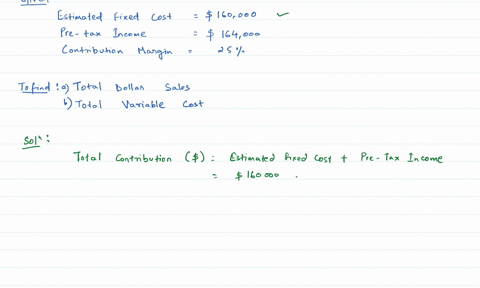 Estimated Fixed Cost = $160,000 ✓
Pre-tax Income = $164,000
Contribution Margin = 25%
To find: a) Total Dollar Sales
b) Total Variable Cost
Solⁿ:
Total Contribution ($) = Estimated Fixed Cost + Pre-Tax Income
= $160000